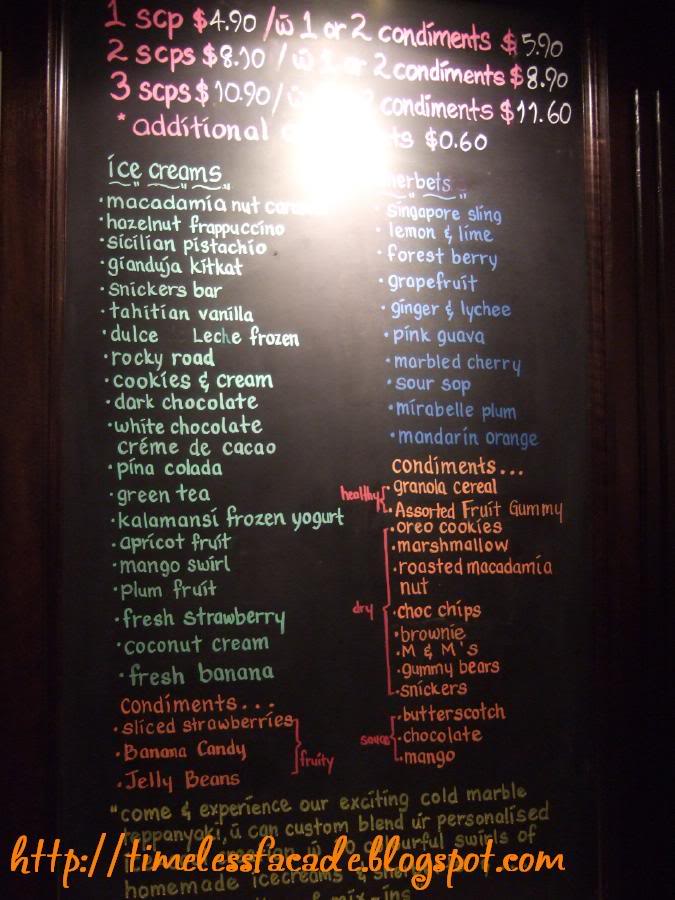 1 scp $4.90 / w̄ 1 or 2 condiments $5.90
2 scps $8.10 / w̄ 1 or 2 condiments $8.90
3 scps $10.90 / 2 condiments $11.60
* additional $0.60
ice creams
· macadamia nut
· hazelnut frappuccino
· sicilian pistachio
· gianduja kitkat
· snickers bar
· tahitian vanilla
· dulce Leche frozen
· rocky road
· cookies & cream
· dark chocolate
· white chocolate
créme de cacao
· pina colada
· green tea
· kalamansi frozen yogurt
· apricot fruit
· mango swirl
· plum fruit
· fresh strawberry
· coconut cream
· fresh banana
condiments...
· sliced strawberries
· Banana Candy
· Jelly Beans
fruity
· singapore sling
· lemon & lime
· forest berry
· grapefruit
· ginger & lychee
· pink guava
· marbled cherry
· sour sop
· mirabelle plum
· mandarin orange
condiments...
healthy
· granola cereal
· Assorted Fruit Gummy
dry
· oreo cookies
· marshmallow
· roasted macadamia
nut
· choc chips
· brownie
· M & M's
· gummy bears
· snickers
sauce
· butterscotch
· chocolate
· mango
"come & experience our exciting cold marble
teppanyaki, ū can custom blend ur personalised
swirls of
homemade icecreams &
& mix-ins
http://timelessfacade.blogspot.com